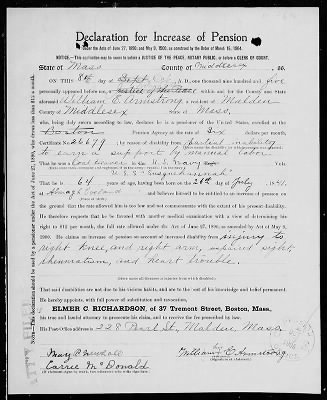 Declaration for Increase of Pension
Under the Acts of June 27, 1890, and May 9, 1900, as construed by the Order of March 15, 1904.
NOTICE.—This application may be sworn to before a JUSTICE OF THE PEACE, NOTARY PUBLIC, or before a CLERK OF COURT.
State of Mass County of Middlesex, ss.
ON THIS 8th day of A. D., one thousand nine hundred and five
personally appeared before me, a within and for the County and State
aforesaid William E. Armstrong a resident of Malden
County of Middlesex State of Mass,
who, being duly sworn according to law, declares he is a pensioner of the United States, enrolled at the
Boston Pension Agency at the rate of Six dollars per month,
Certificate No. 26679, by reason of disability from partial inability
to earn a support by manual labor
That he was Coal Heaver in the U. S. Navy Vols.
U.S.S. "Susquehannah"
That he is 64 years of age, having been born on the day of July, 1841,
at England and believes himself to be entitled to an increase of pension on
the ground that the rate allowed him is too low and not commensurate with the extent of his present disability.
He therefore requests that he be favored with another medical examination with a view of determining his
right to $12 per month, the full rate allowed under the Act of June 27, 1890, as amended by Act of May 9,
1900. He claims an increase of pension on account of increased disability from injury to
right knee, and right arm, impaired sight,
rheumatism, and heart trouble.
That said disabilities are not due to his vicious habits, and are to the best of his knowledge and belief permanent.
He hereby appoints, with full power of substitution and revocation,
ELMER C. RICHARDSON, of 37 Tremont Street, Boston, Mass.,
his true and lawful attorney to prosecute his claim, and to receive the fee prescribed by law.
His Post-Office address is 228 Pearl St, Malden, Mass
Mary P. Newhall William E. Armstrong
Carrie McDonald